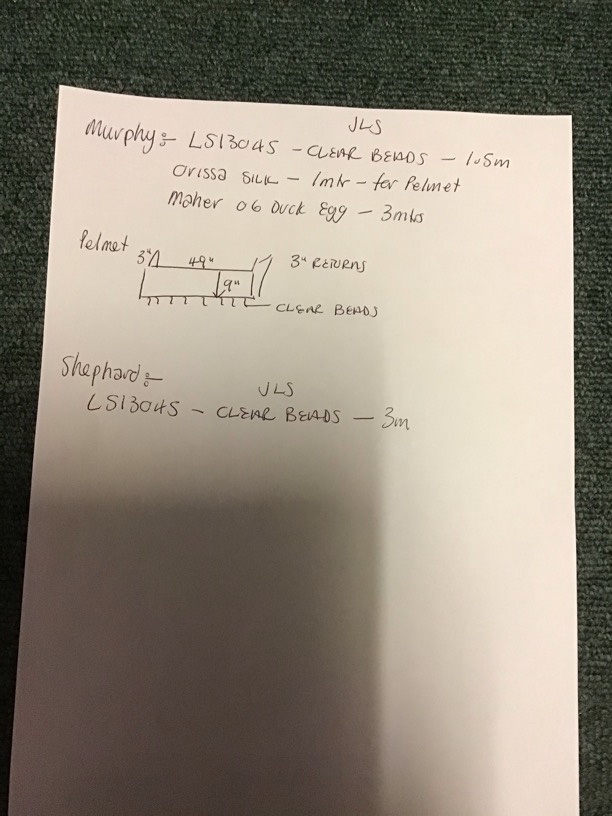 JLS
Murphy:- LS13045 - CLEAR BEADS - 1.5m
Orissa SILK - 1mtr - for Pelmet
Maher 06 Duck Egg - 3mtrs
Pelmet
3" 49" 3" RETURNS
9"
CLEAR BEADS
Shephard:-
JLS
LS13045 - CLEAR BEADS - 3m